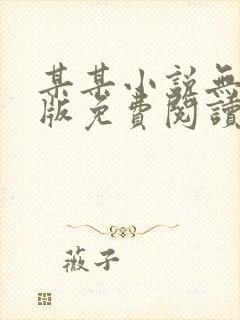 某某小説無
版免費閱讀
薇子